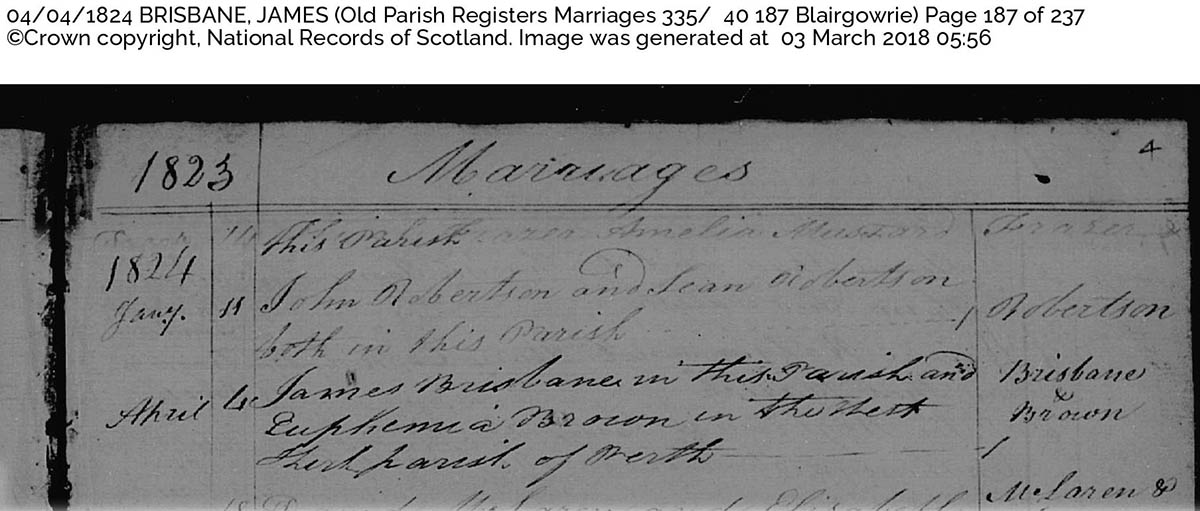 04/04/1824 BRISBANE, JAMES (Old Parish Registers Marriages 335/ 40 187 Blairgowrie) Page 187 of 237
©Crown copyright, National Records of Scotland. Image was generated at 03 March 2018 05:56
4
1823 Marriages
this Parish Amelia Frazer &
1824
Jany. 11 John Robertson and Jean Robertson Robertson
both in this Parish
April 4 James Brisbane in this Parish and Brisbane
& Euphemia Brown in the West Brown
Kirk parish of Perth
McLaren &
McLaren and Elizabeth